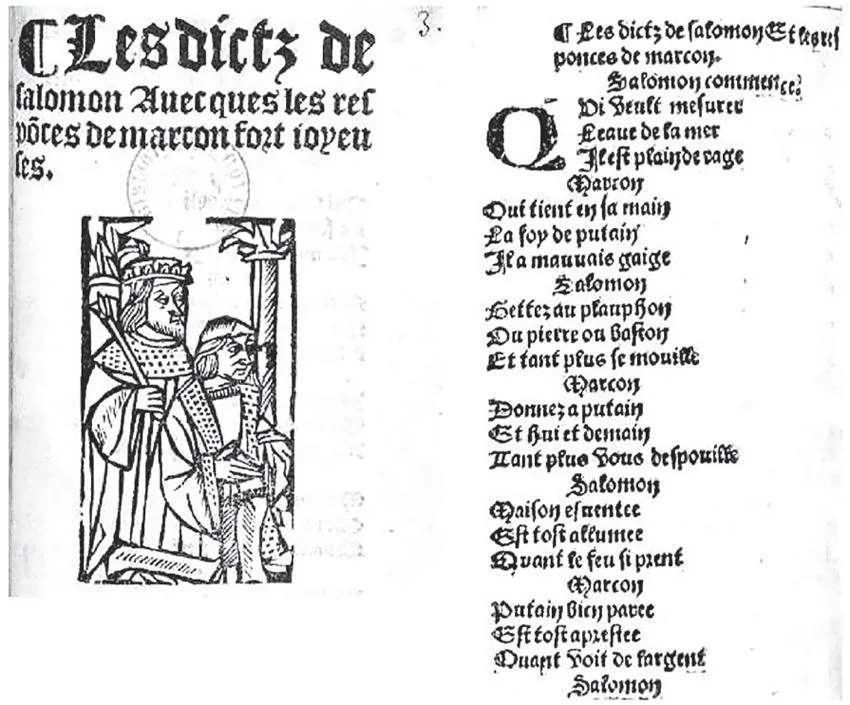 ¶ Les dictz de
salomon Auecques les res
põces de marcon fort ioyeu
ses.
3.
¶ Les dictz de salomon Et les res
ponces de marcon.
Salomon commence
QVi veult mesurer
Leaue de la mer
Il est plain de rage
Marcon
Qui tient en sa main
La foy de putain
Il a mauuais gaige
Salomon
Ou pierre ou baston
Et tant plus se mouille
Marcon
Donnez a putain
Et hui et demain
Tant plus vous despouille
Salomon
Maison esuentee
Est tost allumee
Quant le feu si prent
Marcon
Putain bien paree
Est tost aprestee
Quant voit de largent
Salomon